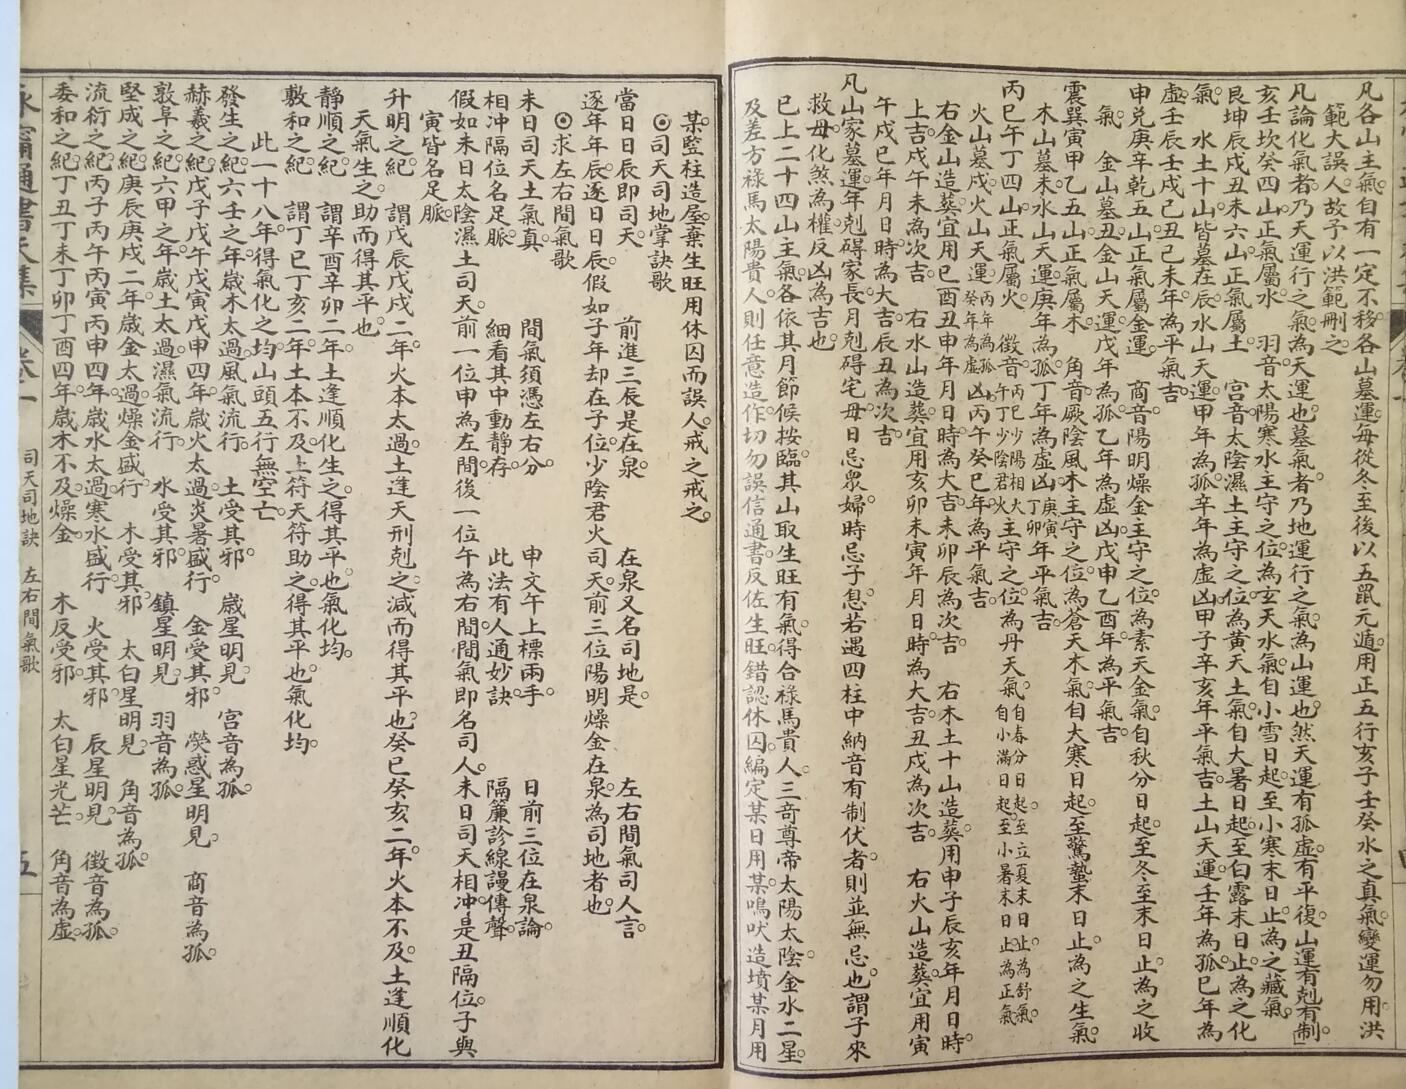 凡各山主氣。自有一定不移。各山墓運。每從冬至後以五鼠元遁。用正五行亥子壬癸水之真氣。變運勿用洪
範大誤人。故予以洪範刪之。
凡論化氣者。乃天運行之氣。為天運也。墓氣。者乃地運行之氣。為山運也。然天運有孤虛。有平復。山運有剋有制。
亥壬坎癸四山。正氣屬水。 羽音太陽寒水。主守之位。為玄天水氣。自小雪日起。至小寒末日止。為之藏氣。
艮坤辰戌丑未六山。正氣屬土。 宮音太陰濕土。主守之位。為黃天土氣。自大暑日起。至白露末日止。為之化
氣。 水土十山。皆墓在辰。水山天運。甲年為孤。辛年為虛凶。甲子辛亥年平氣吉。土山天運。壬年為孤。巳年為
虛。壬辰壬戌己丑己未年。為平氣吉。
申兌庚辛乾五山。正氣屬金運。 商音陽明燥金。主守之位。為素天金氣。自秋分日起。至冬至末日止。為之收
氣。 金山墓丑。金山天運。戊年為孤。乙年為虛凶。戊申乙酉年。為平氣吉。
震巽寅甲乙五山。正氣屬木。 角音厥陰風木。主守之位。為蒼天木氣。自大寒日起。至驚蟄末日止。為之生氣。
木山墓未。木山天運。庚年為孤。丁年為虛凶。庚寅丁卯年平氣吉。
丙巳午丁四山。正氣屬火。 徵音。丙巳少陽相火午丁少陰君火主守之位。為丹天氣。自春分日起。至立夏末日止。為舒氣。自小滿日起。至小暑末日止。為正氣
火山墓戌。火山天運。丙年為孤癸年為虛凶。丙午癸巳年。為平氣吉。
右金山造葬。宜用巳酉丑申年月日時。為大吉。未卯辰為次吉。 右木土十山造葬。用申子辰亥年月日時。
上吉。戌午未為次吉。 右水山造葬。宜用亥卯未寅年月日時。為大吉。丑戌為次吉。 右火山造葬。宜用寅
午戌巳年月日時。為大吉。辰丑為次吉。
凡山家墓運。年剋碍家長。月剋碍宅母。日忌眾婦。時忌子息。若遇四柱中納音有制伏者。則並無忌也。謂子來
救母。化煞為權。反凶為吉也。
已上二十四山主氣。各依其月節候。按臨其山。取生旺有氣。得合祿馬貴人。三奇尊帝太陽太陰。金水二星。
及差方祿馬太陽貴人。則任意造作。切勿誤信通書。反佐生旺。錯認休囚。編定某日用某鳴吠造墳。某月用
某豎柱造屋。棄生旺。用休囚。而誤人。戒之戒之。
⊙司天司地掌訣歌
當日日辰即司天。 前進三辰是在泉。 在泉又名司地是。 左右間氣司人言。
逐年年辰。逐日日辰。假如子年却在子位。少陰君火司天。前三位陽明燥金在泉。為司地者也。
⊙求左右間氣歌
未日司天土氣真。 間氣須憑左右分。 申文午上標兩手。 日前三位在泉論。
相冲隔位名足脈。 細看其中動靜存。 此法有人通妙訣。 隔簾診線謾傳聲。
假如未日太陰濕土司天。前一位申為左間。後一位午為右間。間氣即名司人。未日司天相冲。是丑隔位。子與
寅皆名足脈。
升明之紀。 謂戊辰戊戌二年。火本太過。土逢天刑剋之。減而得其平也。癸巳癸亥二年。火本不及。土逢順化
天氣生之。助而得其平也。
靜順之紀。 謂辛酉辛卯二年。土逢順化生之。得其平也。氣化均。
敷和之紀。 謂丁巳丁亥二年。土本不及。上符天符助之。得其平也。氣化均。
此一十八年。得氣化之均。山頭五行無空亡。
發生之紀。六壬之年。歲木太過。風氣流行。 土受其邪。 歲星明見。 宮音為孤。
赫羲之紀。戊子戊午戊寅戊申四年。歲火太過。炎暑盛行。 金受其邪。 熒惑星明見。 商音為孤。
敦阜之紀。六甲之年。歲土太過。濕氣流行。 水受其邪。 鎮星明見。 羽音為孤。
堅成之紀。庚辰庚戌二年。歲金太過。燥金盛行。 木受其邪。 太白星明見。 角音為孤。
流衍之紀。丙子丙午丙寅丙申四年。歲水太過。寒水盛行。 火受其邪。 辰星明見。 徵音為孤。
委和之紀。丁丑丁未丁卯丁酉四年。歲木不及。燥金。 木反受邪。 太白星光芒。 角音為虛。
司天司地訣 左右間氣歌
五